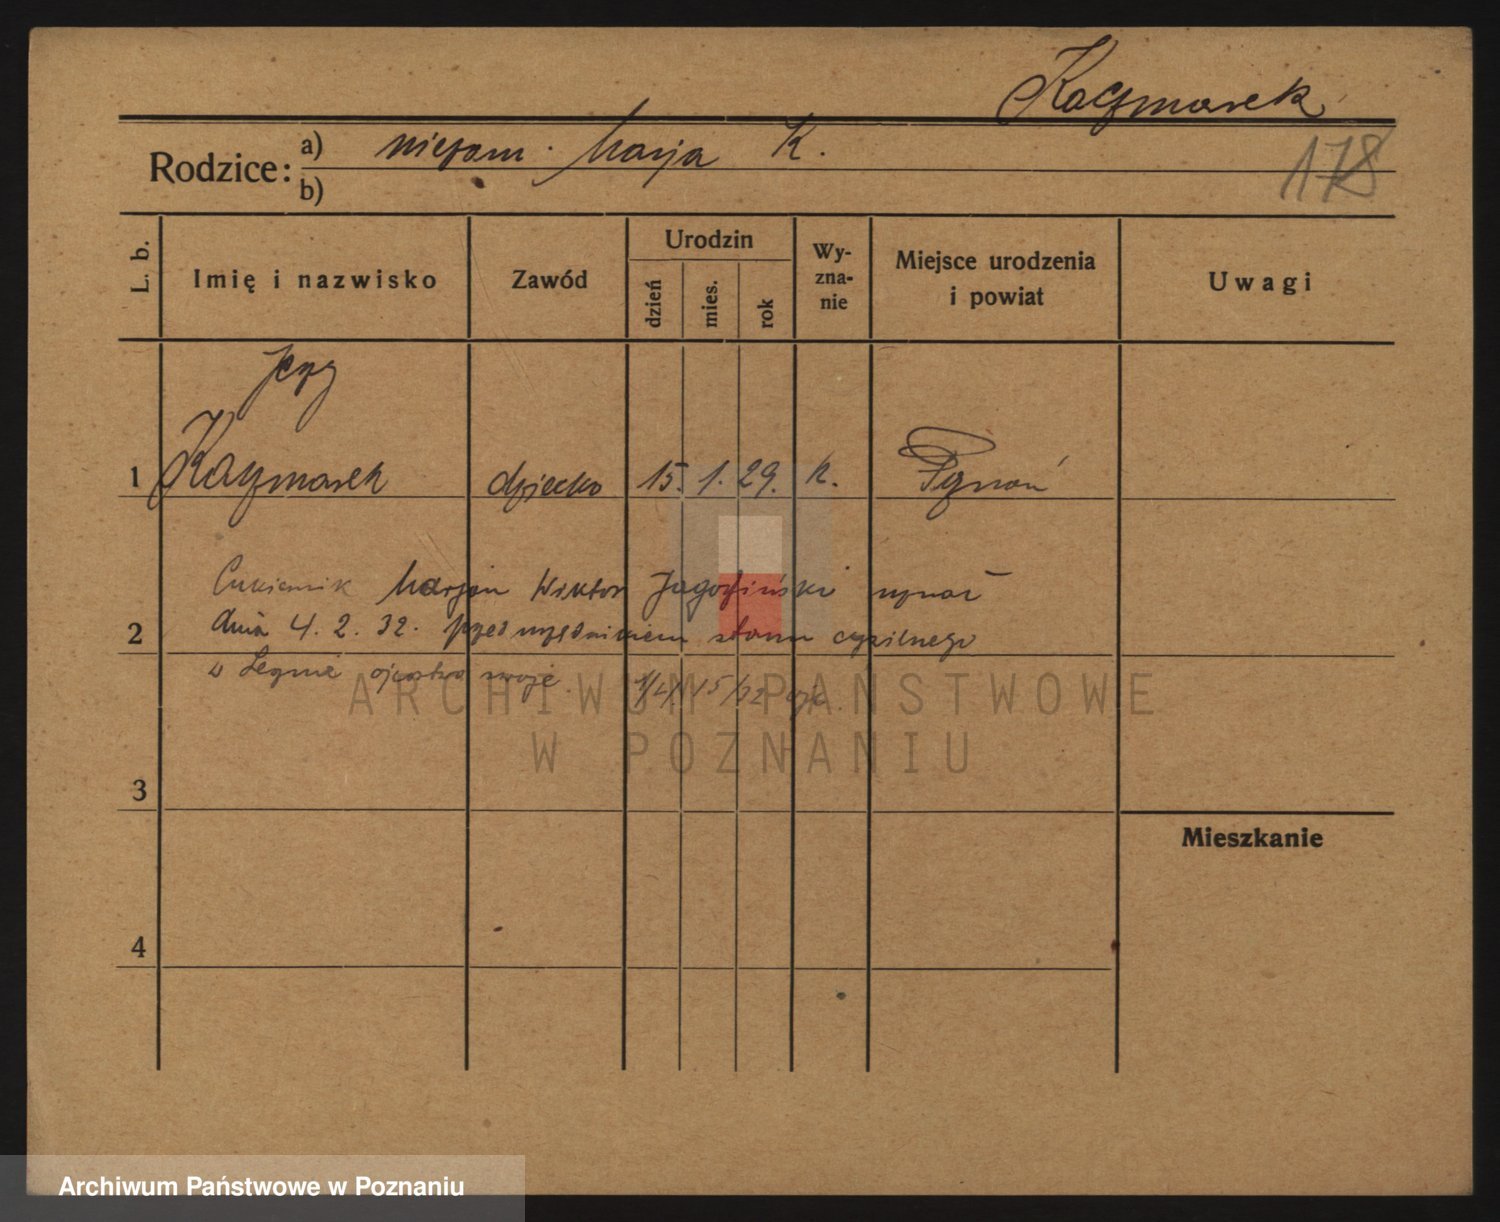 Kaczmarek
178
Rodzice:
a) niezam. Marja K.
b)
L. b.
Imię i nazwisko
Zawód
Urodzin
dzień
mies.
rok
Wy-
zna-
nie
Miejsce urodzenia
i powiat
Uwagi
Jerzy
1 Kaczmarek dziecko 15. 1. 29. k. Poznań
Cukiernik Marjan Wiktor Jagodziński uznał
dnia 4. 2. 32. przed urzędnikiem stanu cywilnego
2
w ojcostwo swoje.
3
Mieszkanie
4
ARCHIWUM PAŃSTWOWE
W POZNANIU
Archiwum Państwowe w Poznaniu